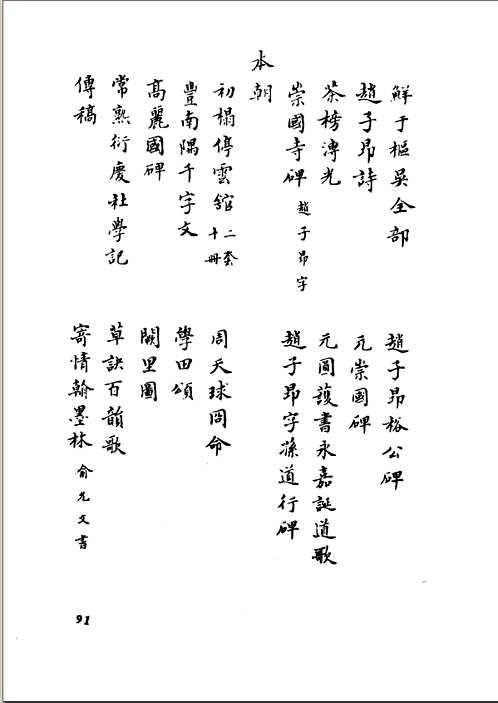 鮮于樞吳全部　趙子昂裕公碑
趙子昂詩　元崇國碑
茶榜溥光　元圓護書永嘉誕道歌
崇國寺碑 趙子昂字　趙子昂字孫道行碑
本朝
初榻停雲舘 二套十冊　周天球冏命
豐南隅千字文　學田頌
高麗國碑　闕里圖
常熟衍慶社學記　草訣百韻歌
傳稿　寄情翰墨林 俞允文書
91